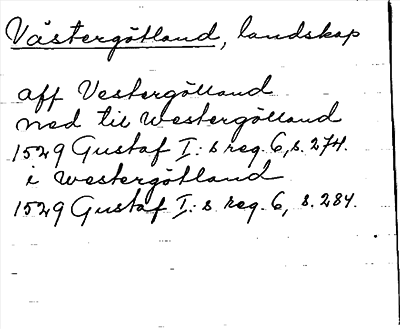 Västergötland, landskap
aff Vestergötland
ned til westergötland
1529 Gustaf I:s reg. 6, s. 274.
i westergötland
1529 Gustaf I:s reg. 6, s. 284.